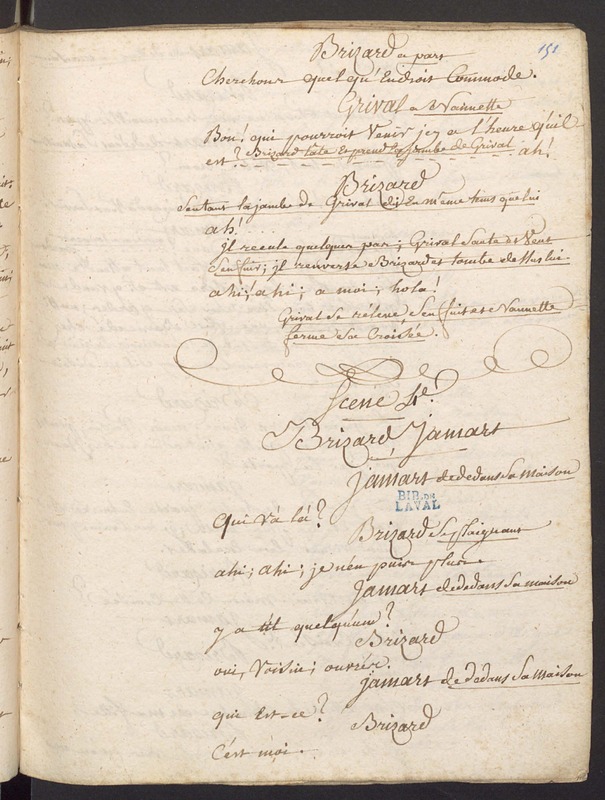 151
Brizard a part
Cherchons quelqu'Endroit Commode.
Grival a Nannette
Bon! qui pourroit Venir jcy a l'heure qu'il
est? Brizard tâte Et prend la jambe de Grival ah!
Brizard
Sentant la jambe de Grival dit En même tems que lui
ah!
jl recule quelques pas; Grival Saute et Veut
S'enfuir; jl renverse Brizard et tombe dessus lui.
ahi! ahi; a moi; hola!
Grival Se réleve, S'enfuit et Nannette
ferme Sa Croisée.
Scene 4e.
Brizard Jamart
Jamart de dedans Sa maison
Qui va là?
BIB. DE
LAVAL
Brizard Se plaignant
ahi; ahi; je n'en puis plus.
Jamart de dedans Sa maison
y a til quelqu'un?
Brizard
oui, Voisin; ouvrés.
Jamart de dedans Sa maison
qui Est-ce?
Brizard
C'est moi.